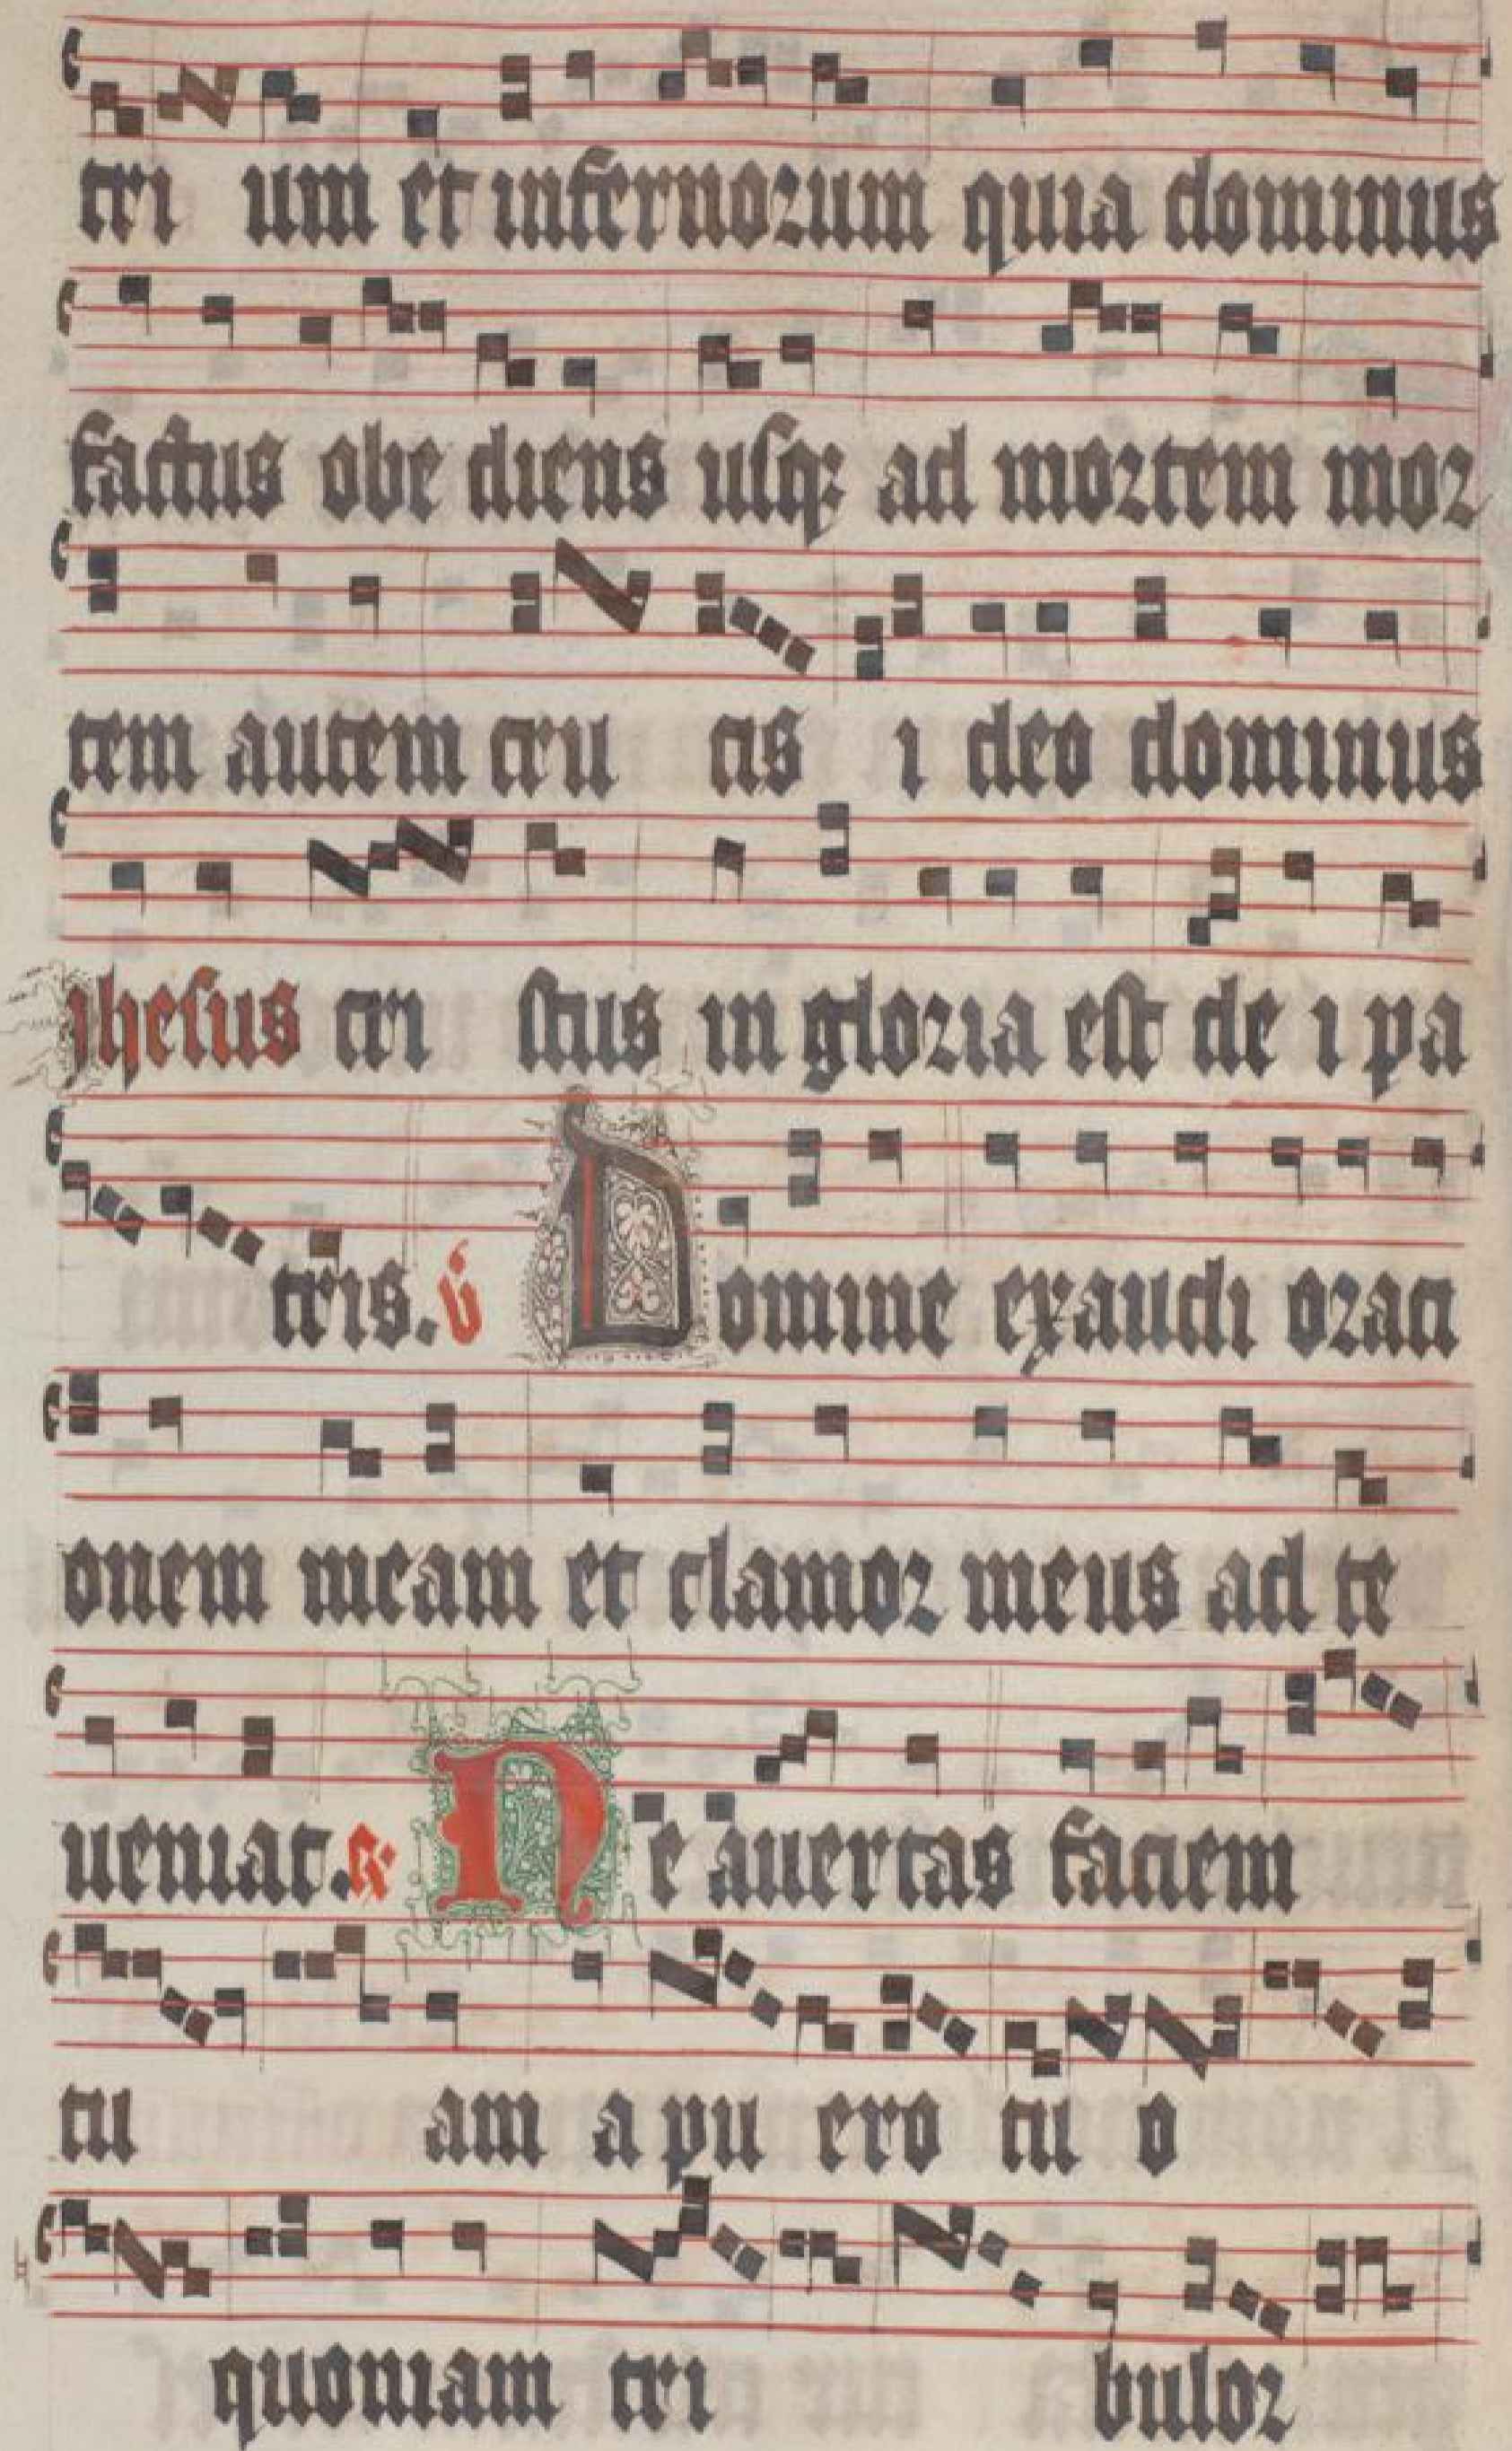 tri um et infernorum quia dominus
factus obe diens usqꝫ ad mortem mor
tem autem cru cis i deo dominus
Jhesus cri stus in gloria est de i pa
tris. ℣ Domine exaudi oraci
onem meam et clamor meus ad te
ueniat. ℟ Ne auertas faciem
tu am a pu ero tu o
quoniam tri bulor